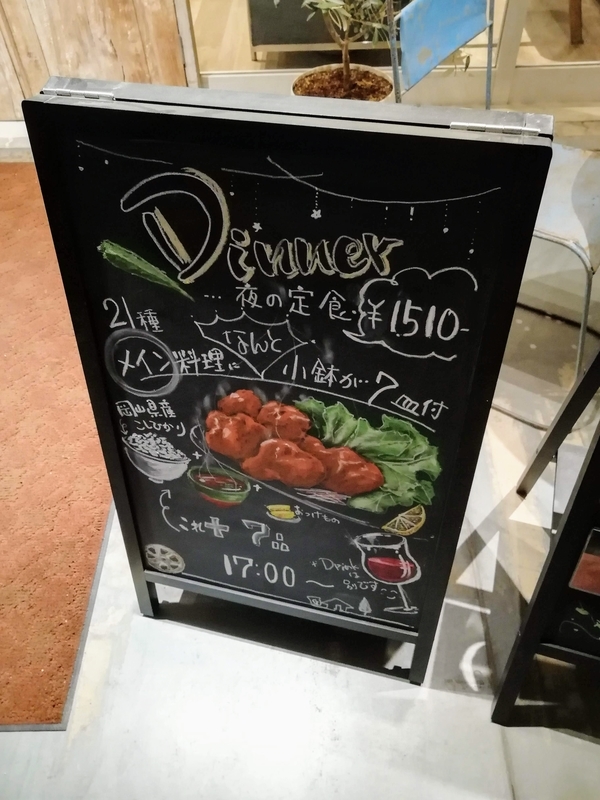 Dinner
…夜の定食…¥1510-
21種
なんと
メイン料理に
小鉢が…7皿付
岡山県産
こしひかり
おつけもの
これ+7品
17:00~
+Drinkは
別です